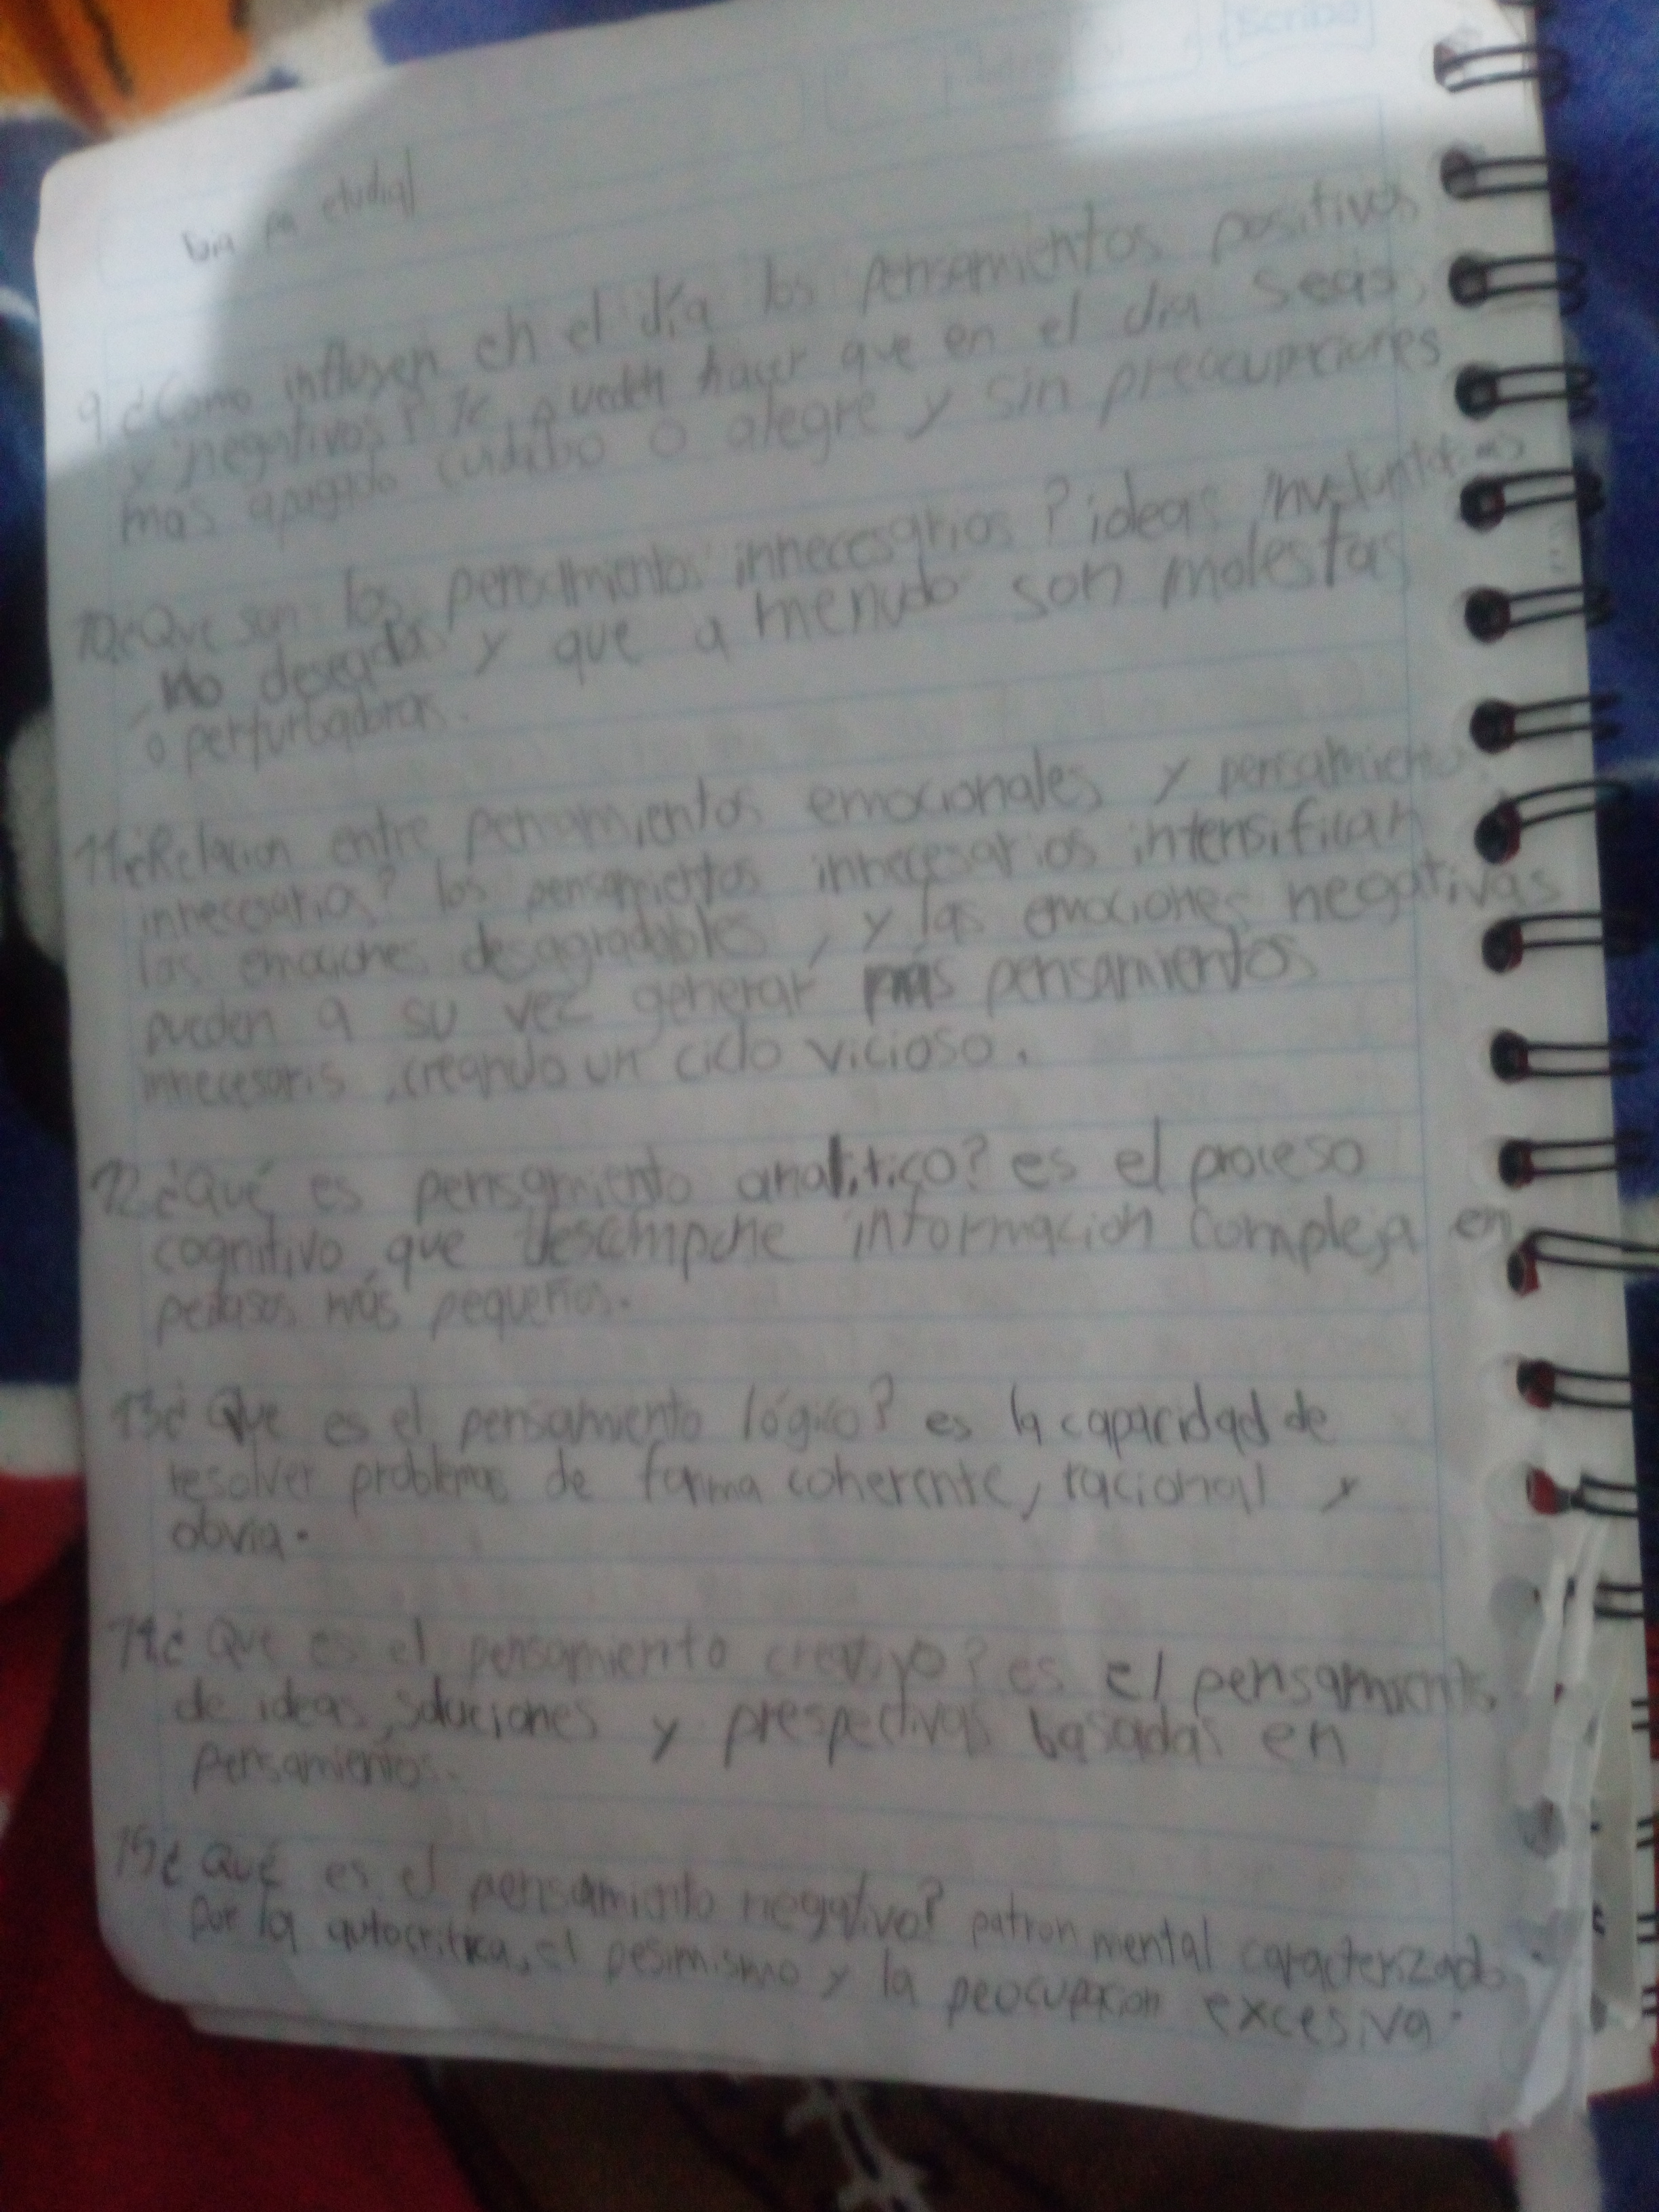 Scribe
9¿Como influyen en el día los pensamientos positivos
y negativos? Te pueden hacer que en el dia seas,
mas apagado o alegre y sin preocupaciones
10¿Que son los pensamientos innecesarios? ideas involuntarias
, no deseadas y que a menudo son molestas
o perturbadoras.
11¿Relacion entre pensamientos emocionales y pensamiento
innecesarios? los pensamientos innecesarios intensifican
las emociones desagradables, y las emociones negativas
pueden a su vez generar más pensamientos
innecesaris, creando un ciclo vicioso.
12¿Qué es pensamiento analitico? es el proceso
cognitivo que descompone informacion compleja en
pedasos más pequeños.
13¿Que es el pensamiento lógico? es la capacidad de
resolver problemas de forma coherente, racional y
obvia.
14¿Que es el pensamiento creativo? es el pensamiento
de ideas, soluciones y prespectivas basadas en
pensamientos.
15¿Qué es el pensamiento negativo? patron mental caracterizado
por la autocritica, el pesimismo y la peocupacion excesiva.